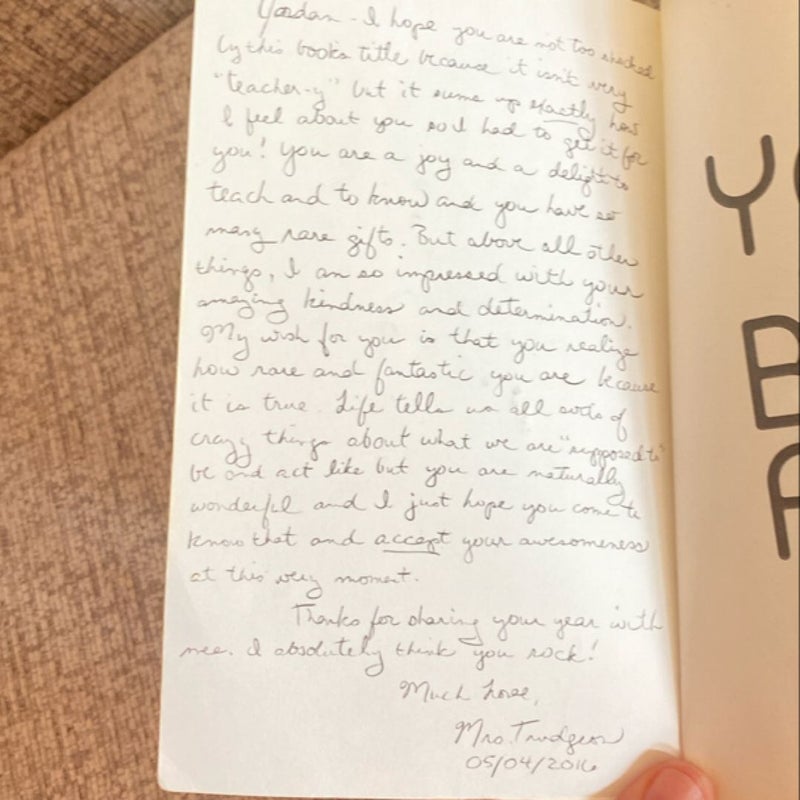 Jordan - I hope you are not too shocked
by this books title because it isn't very
"teacher-y" but it sums up exactly how
I feel about you so I had to get it for
you! You are a joy and a delight to
teach and to know and you have so
many rare gifts. But above all other
things, I am so impressed with your
amazing kindness and determination.
My wish for you is that you realize
how rare and fantastic you are because
it is true. Life tells us all sorts of
crazy things about what we are "supposed to"
be and act like but you are naturally
wonderful and I just hope you come to
know that and accept your awesomeness
at this very moment.
Thanks for sharing your year with
me. I absolutely think you rock!
Much love,
Mrs. Trudgeon
05/04/2016
Y
B
A